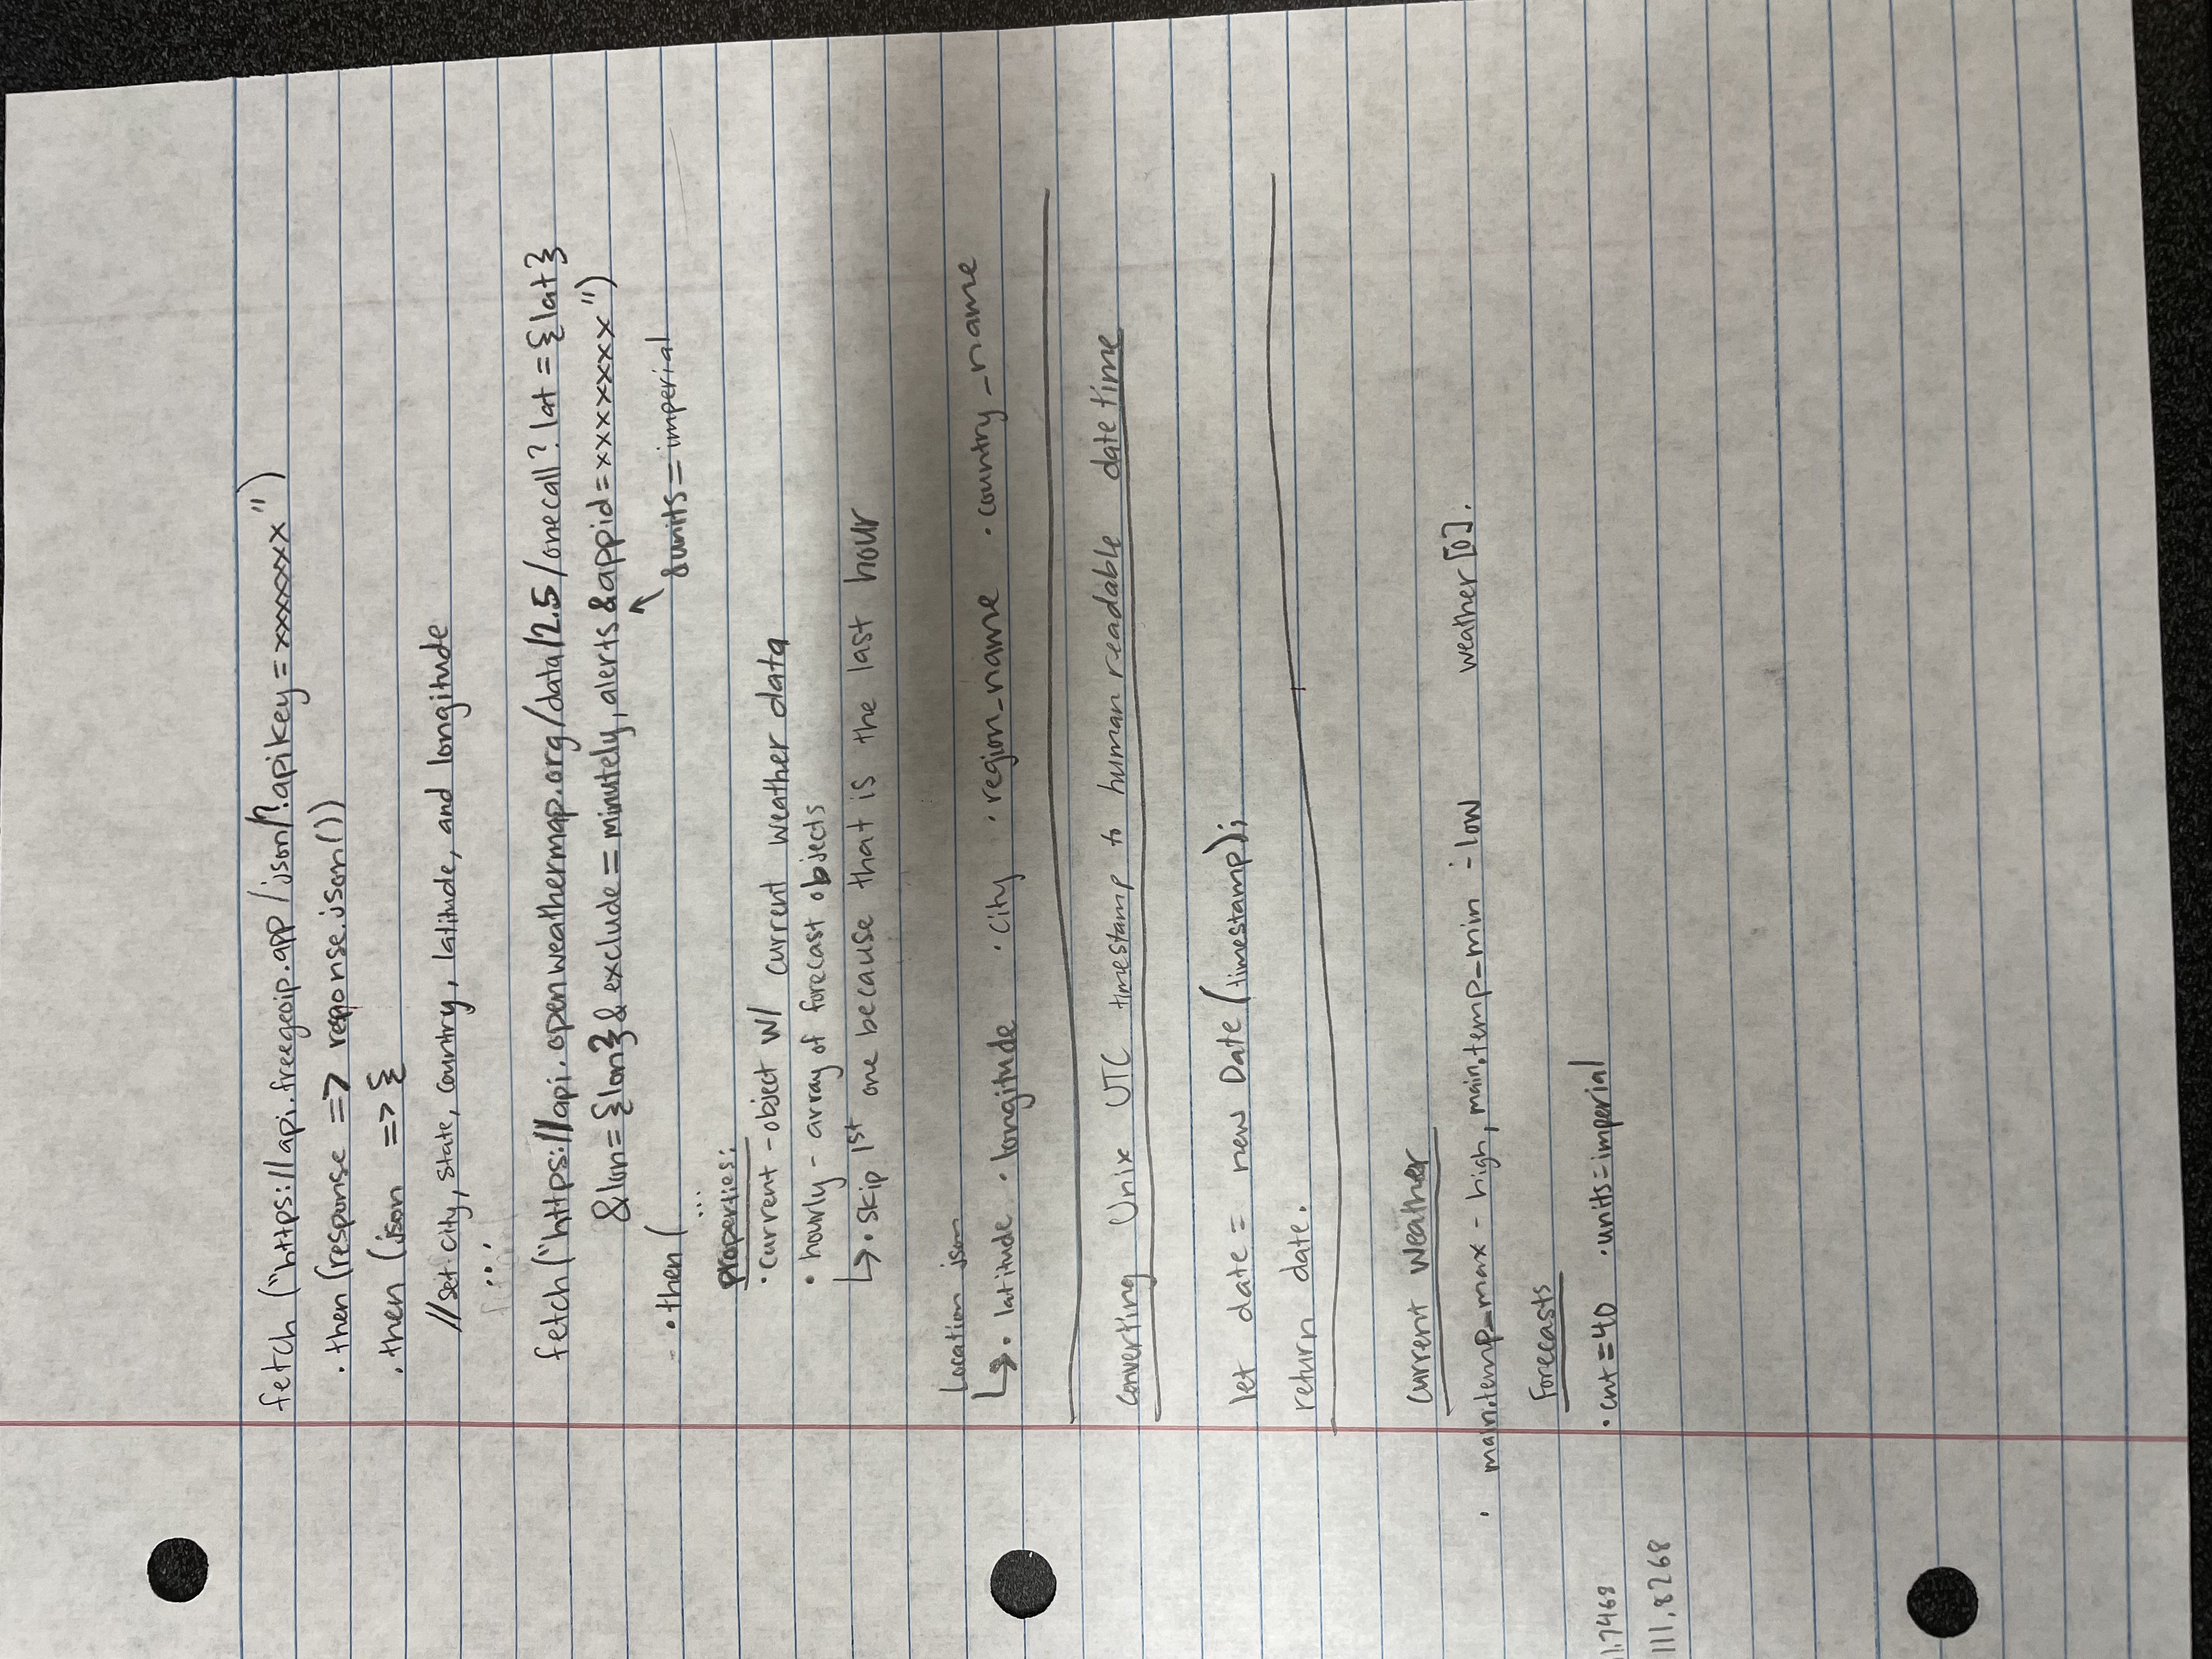 fetch ("https://api.freegeoip.app/json/?apikey=xxxxxxx")
.then (response => reponse.json())
.then (json => {
//set city, state, country, latitude, and longitude
...
fetch ("https://api.openweathermap.org/data/2.5/onecall?lat={lat}
&lon={lon}&exclude=minutely,alerts&appid=xxxxxxx")
&units=imperial
.then (
...
properties:
• current - object w/ current weather data
• hourly - array of forecast objects
↳ • skip 1st one because that is the last hour
Location json
↳ • latitude • longitude • city • region_name • country_name
Converting Unix UTC timestamp to human readable date time
let date = new Date (timestamp);
return date.
Current Weather
• main.temp_max - high, main.temp_min - low weather[0].
Forecasts
• cnt=40 • units=imperial
1.7468
111.8268